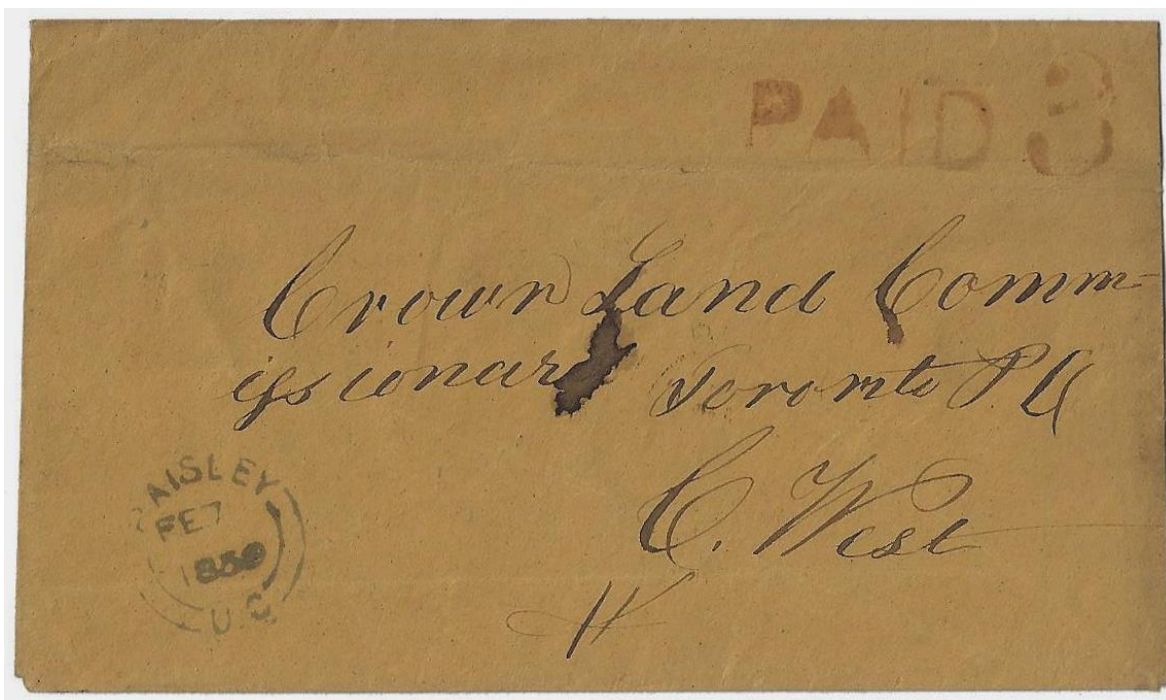 PAID 3
Crown Land Comm-
issionar Toronto P.
C. West
PAISLEY
FE 7
1859
U.C